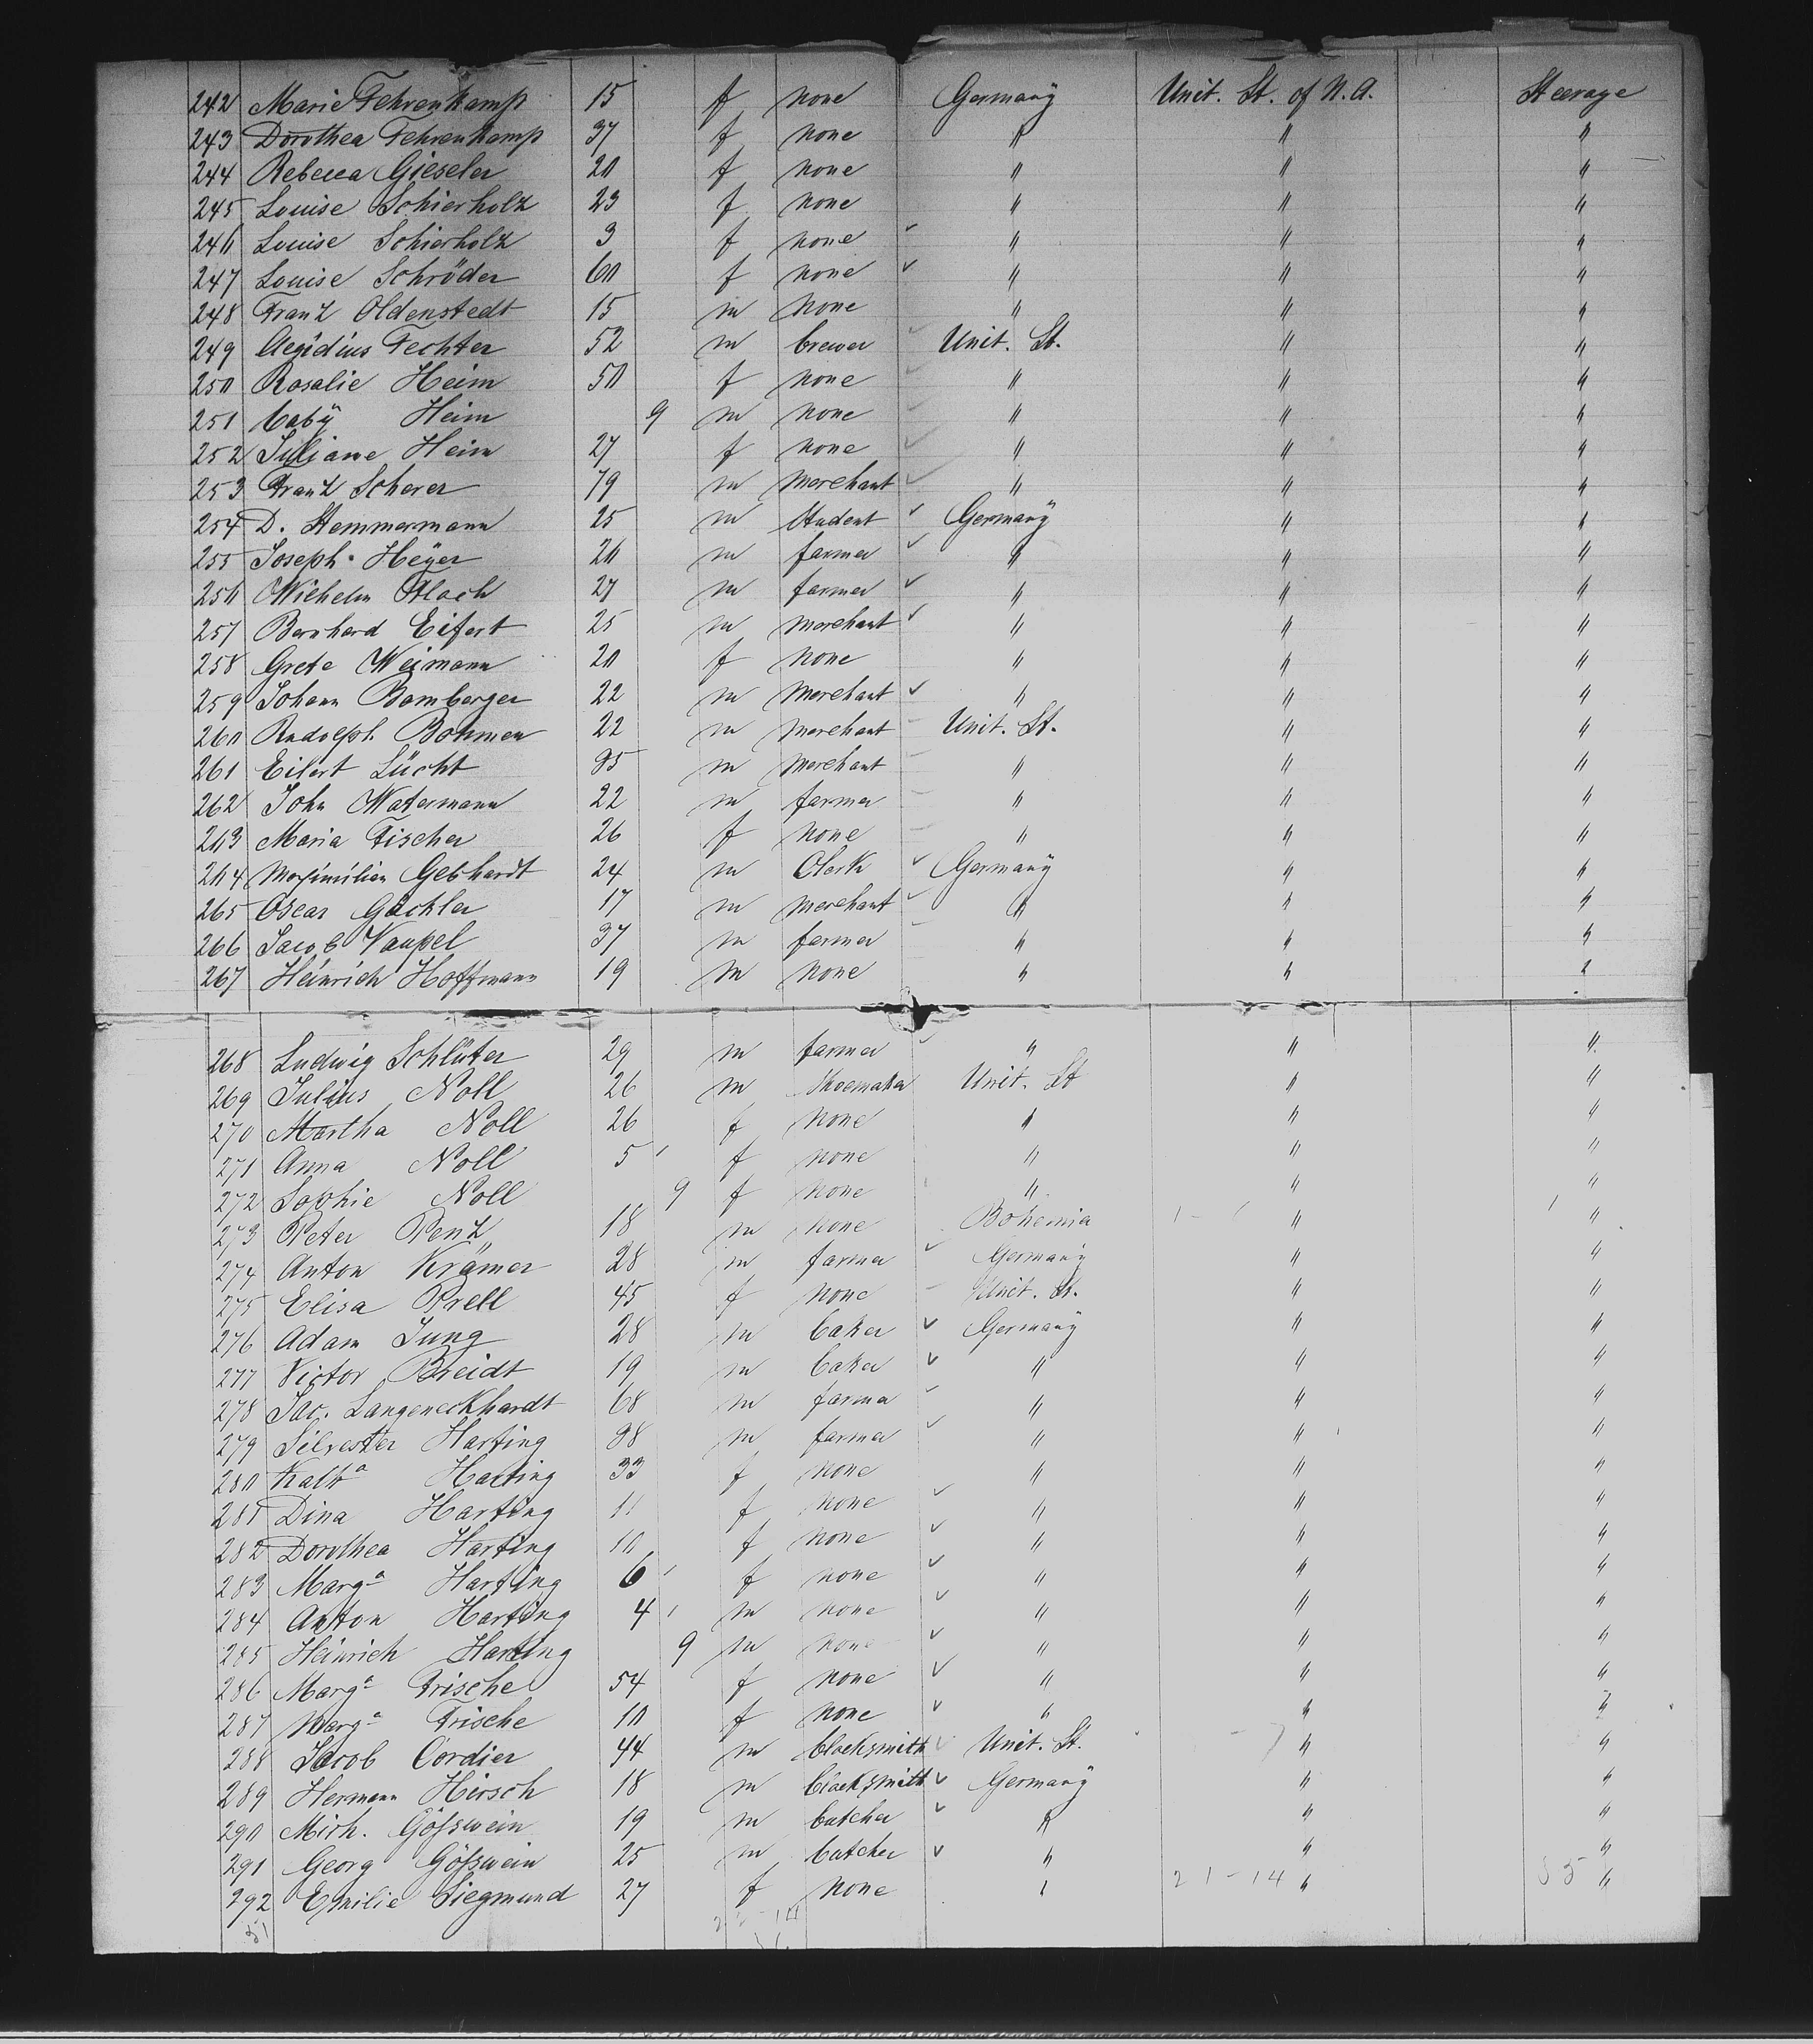 242 Marie Fehrenkamp 15 f none Germany Unit. St. of N. A. Steerage
243 Dorothea Fehrenkamp 37 f none " " "
244 Rebecca Gieseler 20 f none " " "
245 Louise Schierholz 23 f none " " "
246 Louise Schierholz 3 f none " " "
247 Louise Schröder 60 f none " " "
248 Franz Oldenstedt 15 m none " " "
249 Aegidius Fechter 52 m brewer Unit. St. " "
250 Rosalie Heim 50 f none " " "
251 baby Heim 9 m none " " "
252 Juliane Heim 27 f none " " "
253 Franz Scherer 19 m merchant " " "
254 D. Hemmermann 25 m student Germany " "
255 Joseph Heyer 20 m farmer " " "
256 Wilhelm Flach 27 m farmer " " "
257 Bernhard Eifert 25 m merchant " " "
258 Grete Weimann 20 f none " " "
259 Johann Bamberger 22 m merchant " " "
260 Rudolph Bohmen 22 m merchant Unit. St. " "
261 Eilert Lücht 35 m merchant " " "
262 John Watermann 22 m farmer " " "
263 Maria Fischer 26 f none " " "
264 Maximilian Gebhardt 24 m Clerk Germany " "
265 Oscar Gächler 17 m merchant " " "
266 Jacob Vaupel 37 m farmer " " "
267 Heinrich Hoffmann 19 m none " " "
268 Ludwig Schlüter 29 m farmer " " "
269 Julius Noll 26 m Shoemaker Unit. St " "
270 Martha Noll 26 f none " " "
271 Anna Noll 5 f none " " "
272 Sophie Noll 9 f none " " "
273 Peter Renz 18 m none Bohemia " "
274 Anton Krämer 28 m farmer Germany " "
275 Elisa Prell 45 f none Unit. St. " "
276 Adam Jung 28 m baker Germany " "
277 Victor Breidt 19 m baker " " "
278 Jac. Langeneckhardt 68 m farmer " " "
279 Silvester Harting 38 m farmer " " "
280 Kath.a Harting 33 f none " " "
281 Dina Harting 11 f none " " "
282 Dorothea Harting 10 f none " " "
283 Marg.a Harting 6 f none " " "
284 Anton Harting 4 m none " " "
285 Heinrich Harting 9 m none " " "
286 Marg.a Frische 54 f none " " "
287 Marg.a Frische 10 f none " " "
288 Jacob Cordier 44 m blacksmith Unit. St. " "
289 Hermann Hirsch 18 m blacksmith Germany " "
290 Mich. Gößwein 19 m butcher " " "
291 Georg Gößwein 25 m butcher " " "
292 Emilie Siegmund 27 f none " 21-14 " "